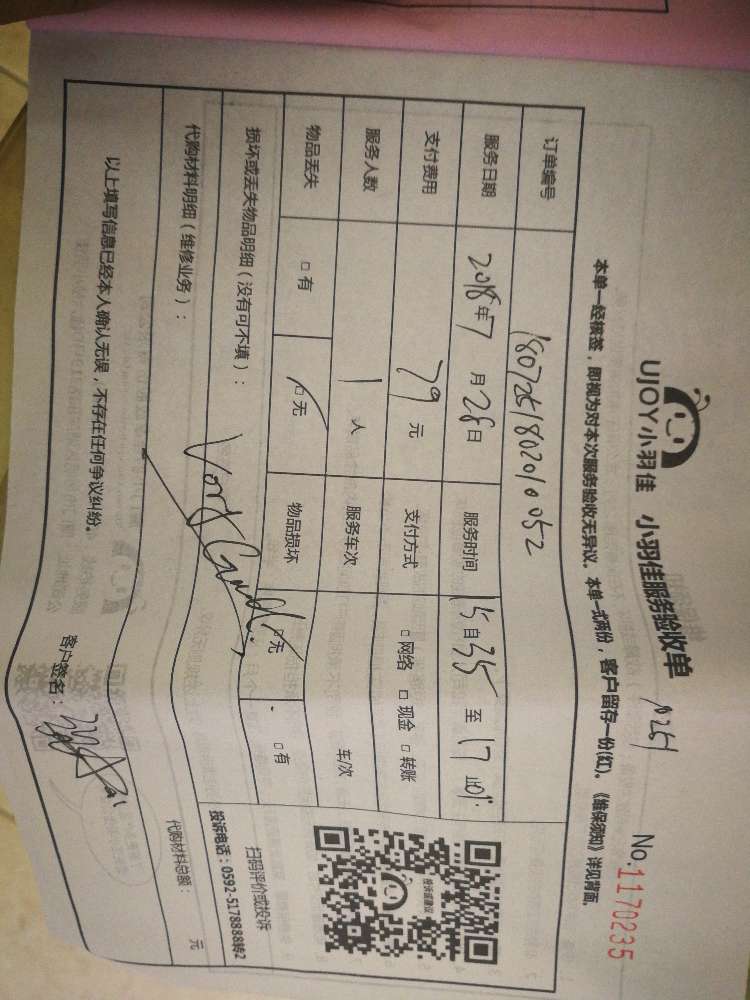 UJOY小羽佳 小羽佳服务验收单 10251 No.1170235
本单一经核签，即视为对本次服务验收无异议。本单一式两份，客户留存一份(红)。《维保须知》详见背面。
订单编号 1807251802010052
服务日期 2018年7月28日 服务时间 15自35至17
支付费用 79元 支付方式 □网络 □现金 □转账
服务人数 1人 服务车次 车/次
物品丢失 □有 □无 物品损坏 □无 □有
损坏或丢失物品明细（没有可不填）：
Very Good!
代购材料明细（维修业务）：
代购材料总额： 元
投诉建议
扫码评价或投诉
投诉电话：0592-5178888转2
以上填写信息已经本人确认无误，不存在任何争议纠纷。
客户签名：